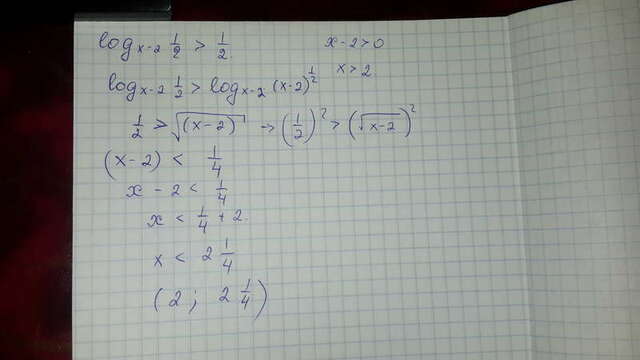 log_{x-2} 1/2 > 1/2
x - 2 > 0
x > 2
log_{x-2} 1/2 > log_{x-2} (x-2)^{1/2}
1/2 > √(x-2) → (1/2)² > (√x-2)²
(x-2) < 1/4
x - 2 < 1/4
x < 1/4 + 2
x < 2 1/4
(2 ; 2 1/4)